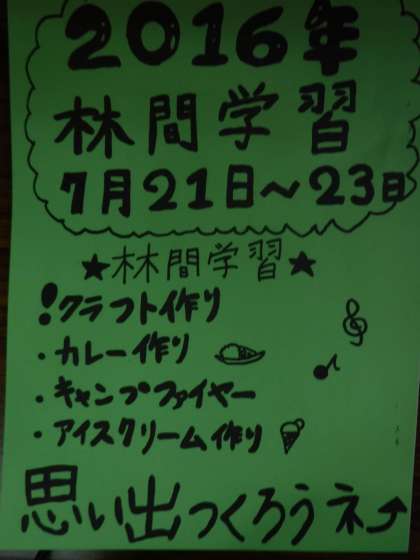 2016年
林間学習
7月21日～23日
★林間学習★
！クラフト作り
・カレー作り
・キャンプファイヤー
・アイスクリーム作り
思い出つくろうネ⤴